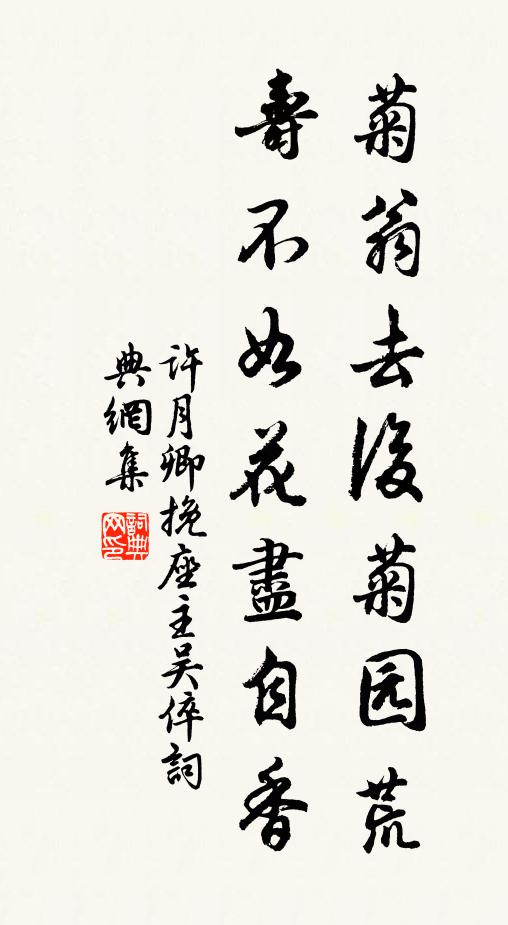 菊翁去後菊园荒
壽不如花盡自香
許月卿挽座主吳倅詞
典網集
詞典网印